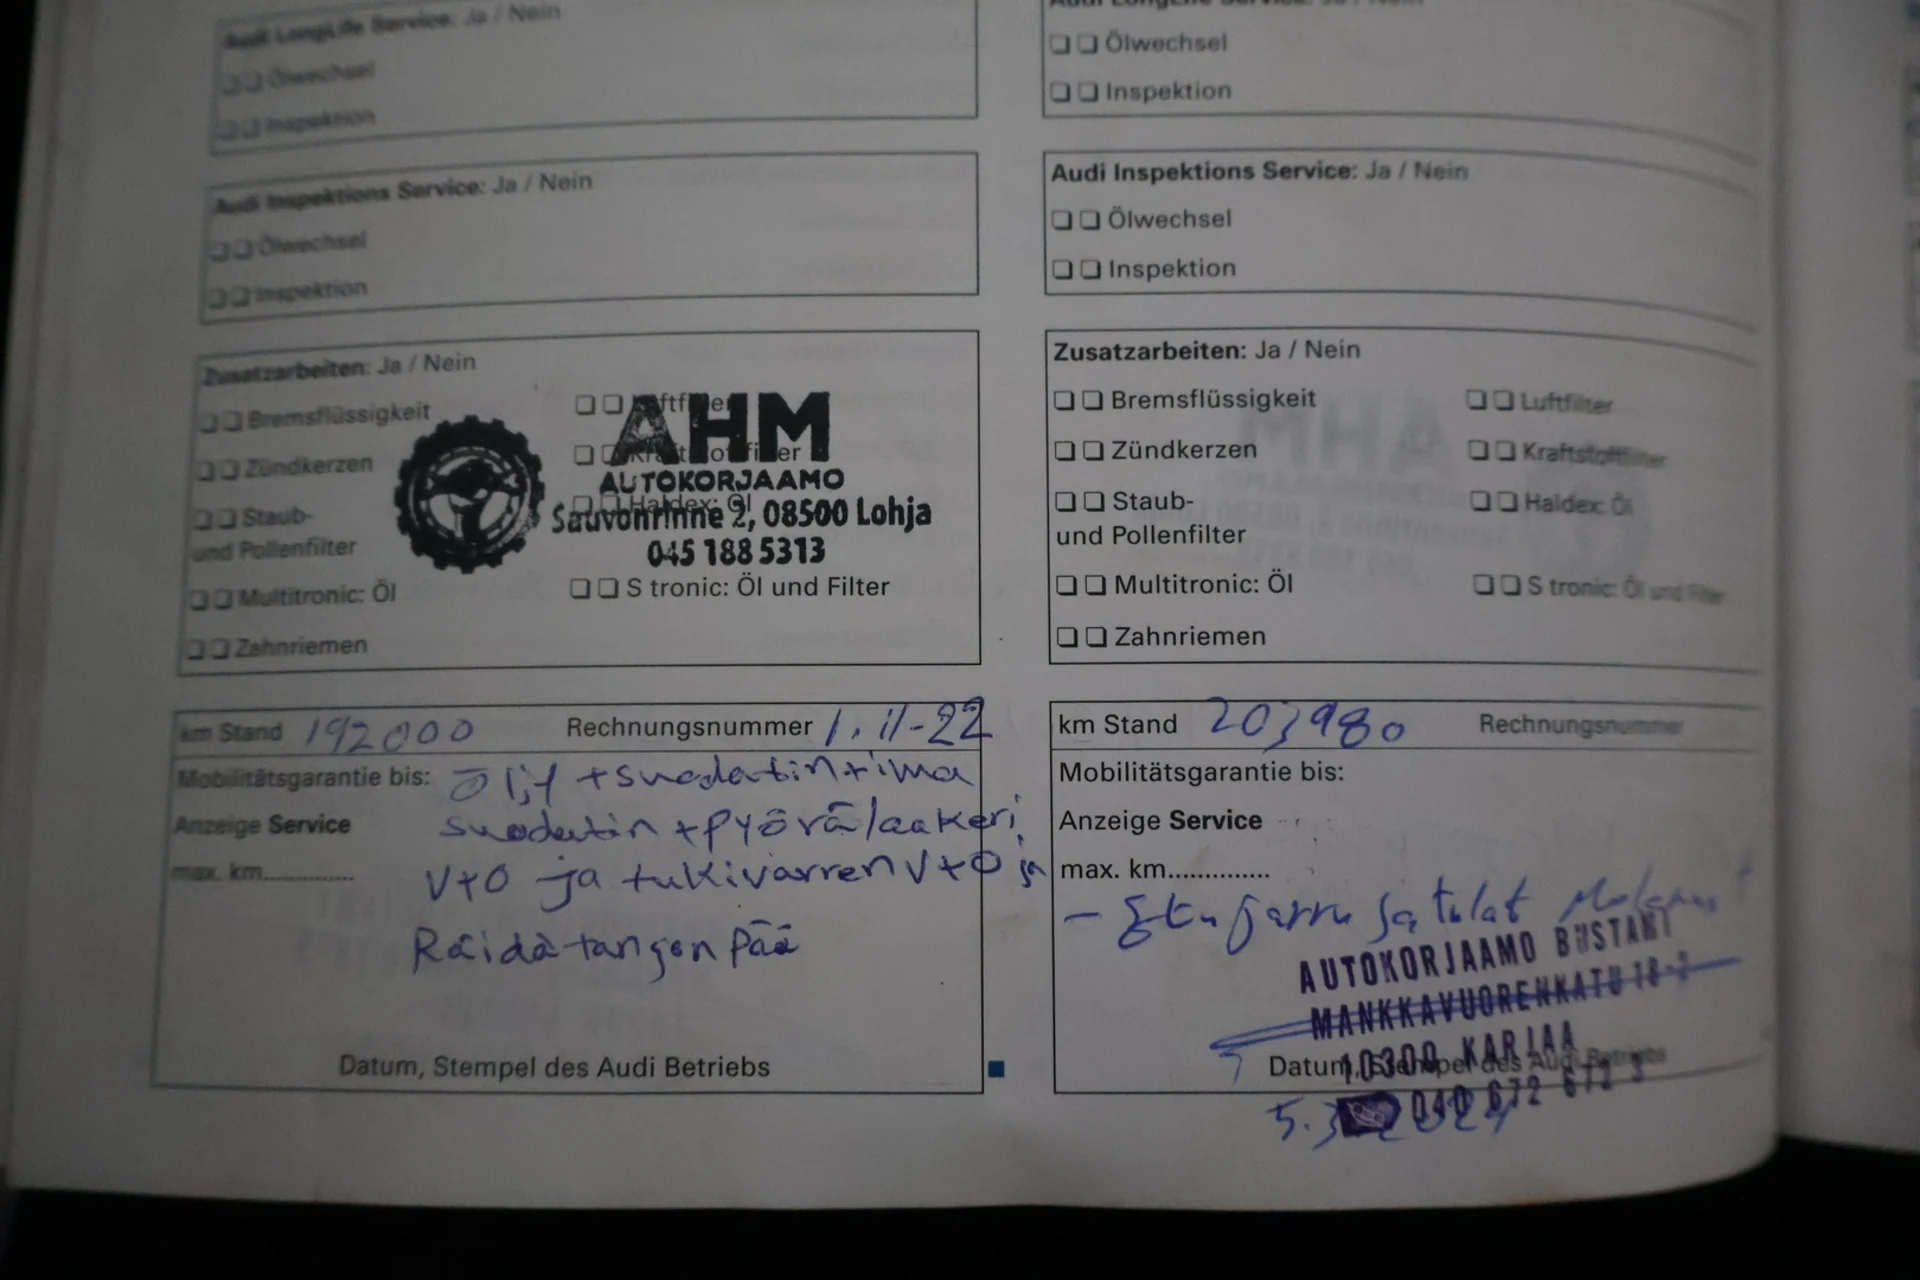 Audi LongLife Service: Ja / Nein
❏❏ Ölwechsel
❏❏ Inspektion
Audi Inspektions Service: Ja / Nein
❏❏ Ölwechsel
❏❏ Inspektion
Zusatzarbeiten: Ja / Nein
❏❏ Bremsflüssigkeit
❏❏ Zündkerzen
❏❏ Staub-
und Pollenfilter
❏❏ Multitronic: Öl
❏❏ Zahnriemen
❏❏ Luftfilter
❏❏ Kraftstofffilter
❏❏ Haldex: Öl
❏❏ S tronic: Öl und Filter
AHM
AUTOKORJAAMO
Sauvonrinne 2, 08500 Lohja
045 188 5313
km Stand 192000 Rechnungsnummer 1.11-22
Mobilitätsgarantie bis: Öljy + suodatin + ilma
Anzeige Service suodatin + pyörälaakeri
max. km.............. V+O ja tukivarren V+O ja
Raidetangon pää
Datum, Stempel des Audi Betriebs
Audi LongLife Service: Ja / Nein
❏❏ Ölwechsel
❏❏ Inspektion
Audi Inspektions Service: Ja / Nein
❏❏ Ölwechsel
❏❏ Inspektion
Zusatzarbeiten: Ja / Nein
❏❏ Bremsflüssigkeit
❏❏ Zündkerzen
❏❏ Staub-
und Pollenfilter
❏❏ Multitronic: Öl
❏❏ Zahnriemen
❏❏ Luftfilter
❏❏ Kraftstofffilter
❏❏ Haldex: Öl
❏❏ S tronic: Öl und Filter
km Stand 203980 Rechnungsnummer
Mobilitätsgarantie bis:
Anzeige Service
max. km..............
- Etu jarru ja tulat
AUTOKORJAAMO BUSTANI
MANKKAVUORENKATU 18
10300 KARJAA
Datum, Stempel des Audi Betriebs
040 672 672 3